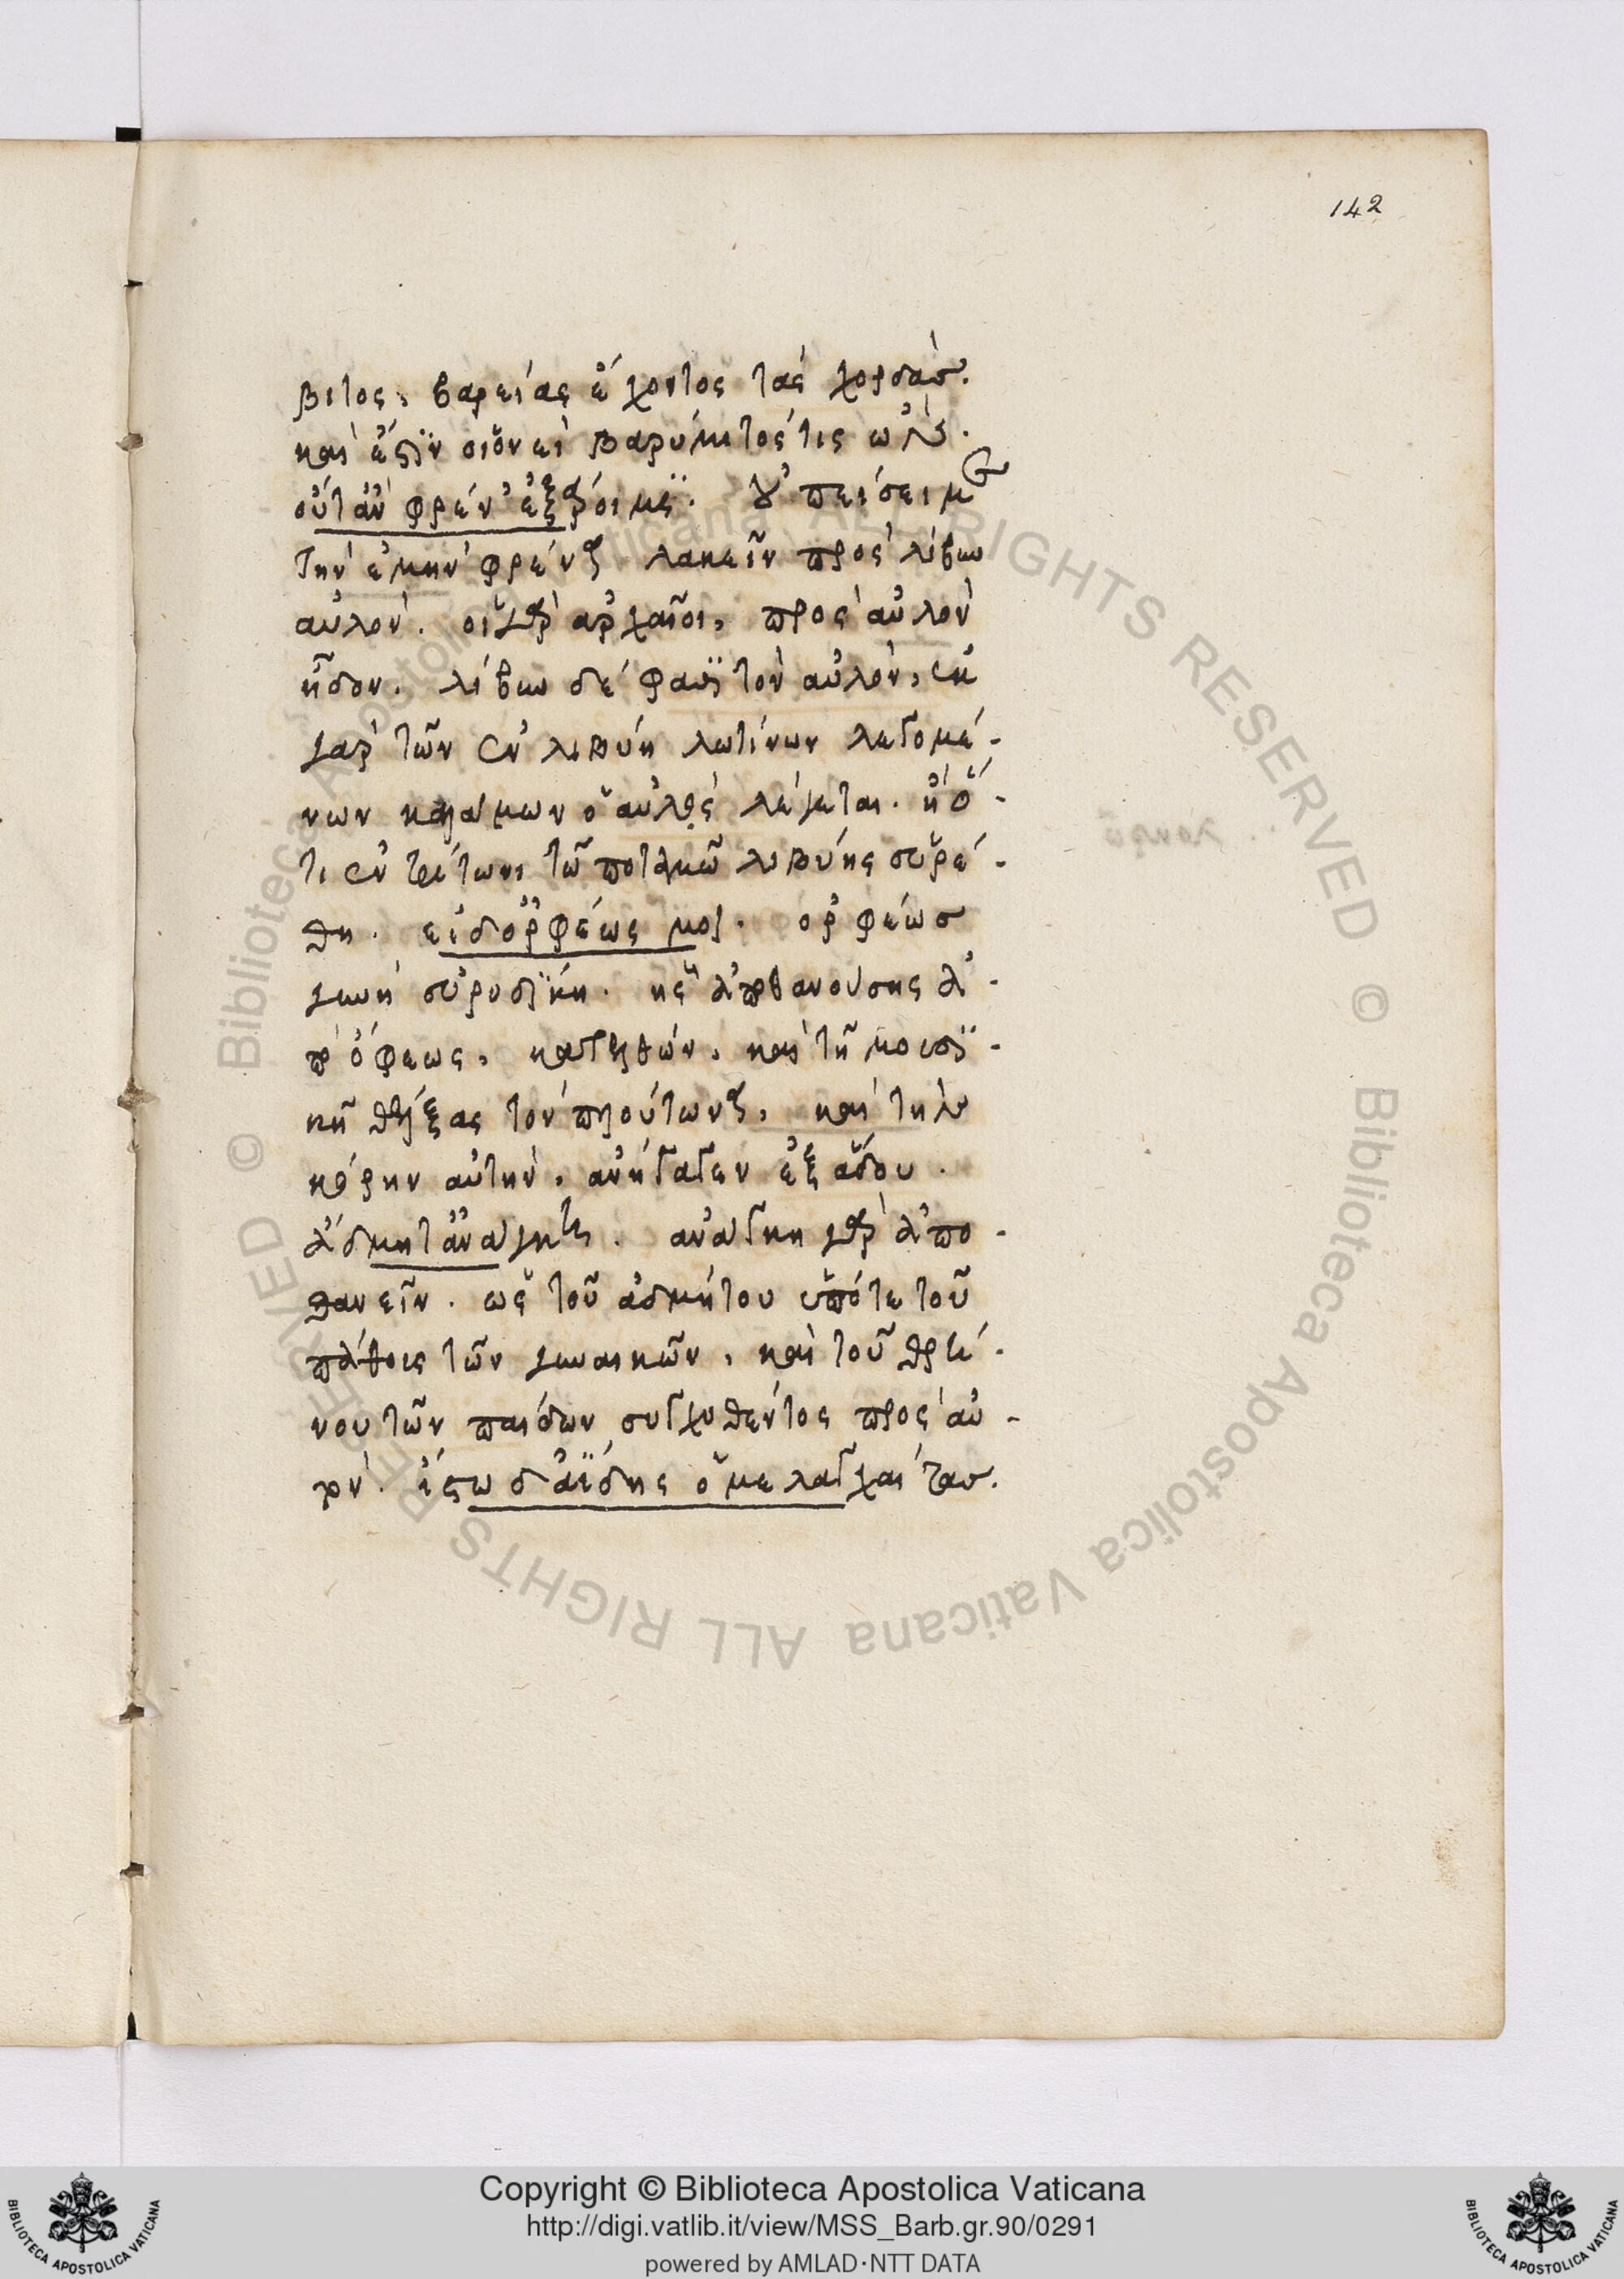 142
βιτος, βαρείας ἔχοντος τὰς χορδάς.
καὶ ἔστιν οἱονεὶ βαρύμιτός τις ὠδή.
οὔτ' ἂν φρέν' ἐξάροιμι. οὐ πείσειας
τὴν ἐμὴν φρένα λακεῖν πρὸς λίβυν
αὐλόν. οἱ γὰρ ἀρχαῖοι, πρὸς αὐλὸν
ἦδον. λίβυν δέ φασι τὸν αὐλόν, ἐκ
γὰρ τῶν ἐν λιβύη λωτίνων λεγομέ-
νων καλάμων ὁ αὐλὸς λέγεται. ἢ ὅ-
τι ἐν τρίτωνι τῶ ποταμῶ λιβύης εὑρέ-
θη. εἰ δ' ὀρφέως μοι. ὀρφέως
γυνὴ εὐρυδίκη. ἧς ἀποθανούσης ἀ-
πὸ ὄφεως, κατελθών, καὶ τῆ μουσι-
κῆ θέλξας τὸν πλούτωνα, καὶ τὴν
κόρην αὐτὴν, ἀνήγαγεν ἐξ ἅδου.
ἄδμητ' ἀνάγκη. ἀνάγκη γὰρ ἀπο-
θανεῖν. ὡς τοῦ ἀδμήτου ὑπό τε τοῦ
πάθους τῶν γυναικῶν, καὶ τοῦ θρή-
νου τῶν παίδων συγχυθέντος πρὸς αὐ-
τόν. ἴστω δ' ἀΐδης ὁ μελαγχαίτας.
Copyright © Biblioteca Apostolica Vaticana
http://digi.vatlib.it/view/MSS_Barb.gr.90/0291
powered by AMLAD·NTT DATA
BIBLIOTECA APOSTOLICA VATICANA
BIBLIOTECA APOSTOLICA VATICANA
© Biblioteca Apostolica Vaticana ALL RIGHTS RESERVED © Biblioteca Apostolica Vaticana ALL RIGHTS RESERVED